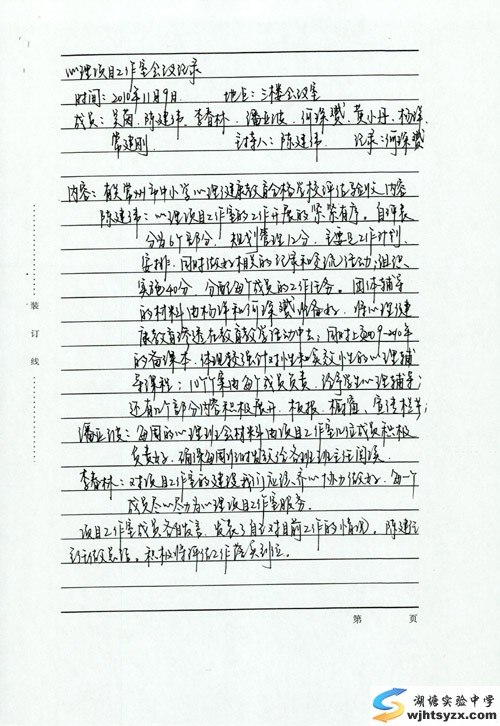 心理项目工作室会议记录
时间：2010年11月9日 地点：三楼会议室
成员：吴菊、陈建伟、李春林、潘亚波、何琛赟、黄小丹、杨琛、
常建刚 主持人：陈建伟 记录：何琛赟
内容：有关常州市中小学心理健康教育合格学校评估验收内容
陈建伟：心理项目工作室的工作开展的紧紧有序。自评表
分为6个部分，规划管理12分，主要是工作计划、
安排，同时做好相关的记录和交流活动；组织
实施40分，分配每个成员的工作任务。团体辅导
的材料由杨琛和何琛赟准备好，将心理健
康教育渗透在教育教学活动中去，同时上交09-2010年
的备课本，体现较强针对性和实效性的心理辅
导课程；10个个案由每个成员负责，给予学生心理辅导；
还有几个部分内容积极展开，板报、橱窗、宣传栏等；
潘亚波：每周的心理班会材料由项目工作室几位成员积极
负责好，确保每周的发给各班班主任阅读。
李春林：对项目工作室的建设我们应该齐心协力做好，每一个
成员尽心尽力为心理项目工作室服务。
项目工作室成员各自发言，发表了自己对目前工作的情况，陈建伟
主任做总结，积极将评估工作落实到位。
装
订
线
第 页
湖塘实验中学
wjhtsyzx.com